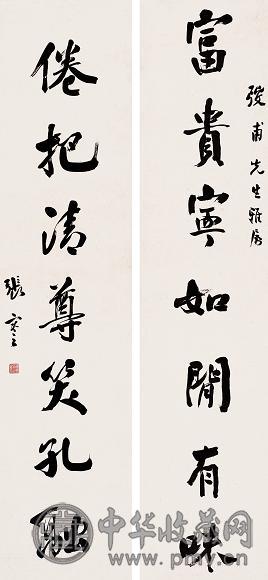 甫先生雅屬
富貴寧如閒有味
倦把清尊笑孔融
張
中华收藏网